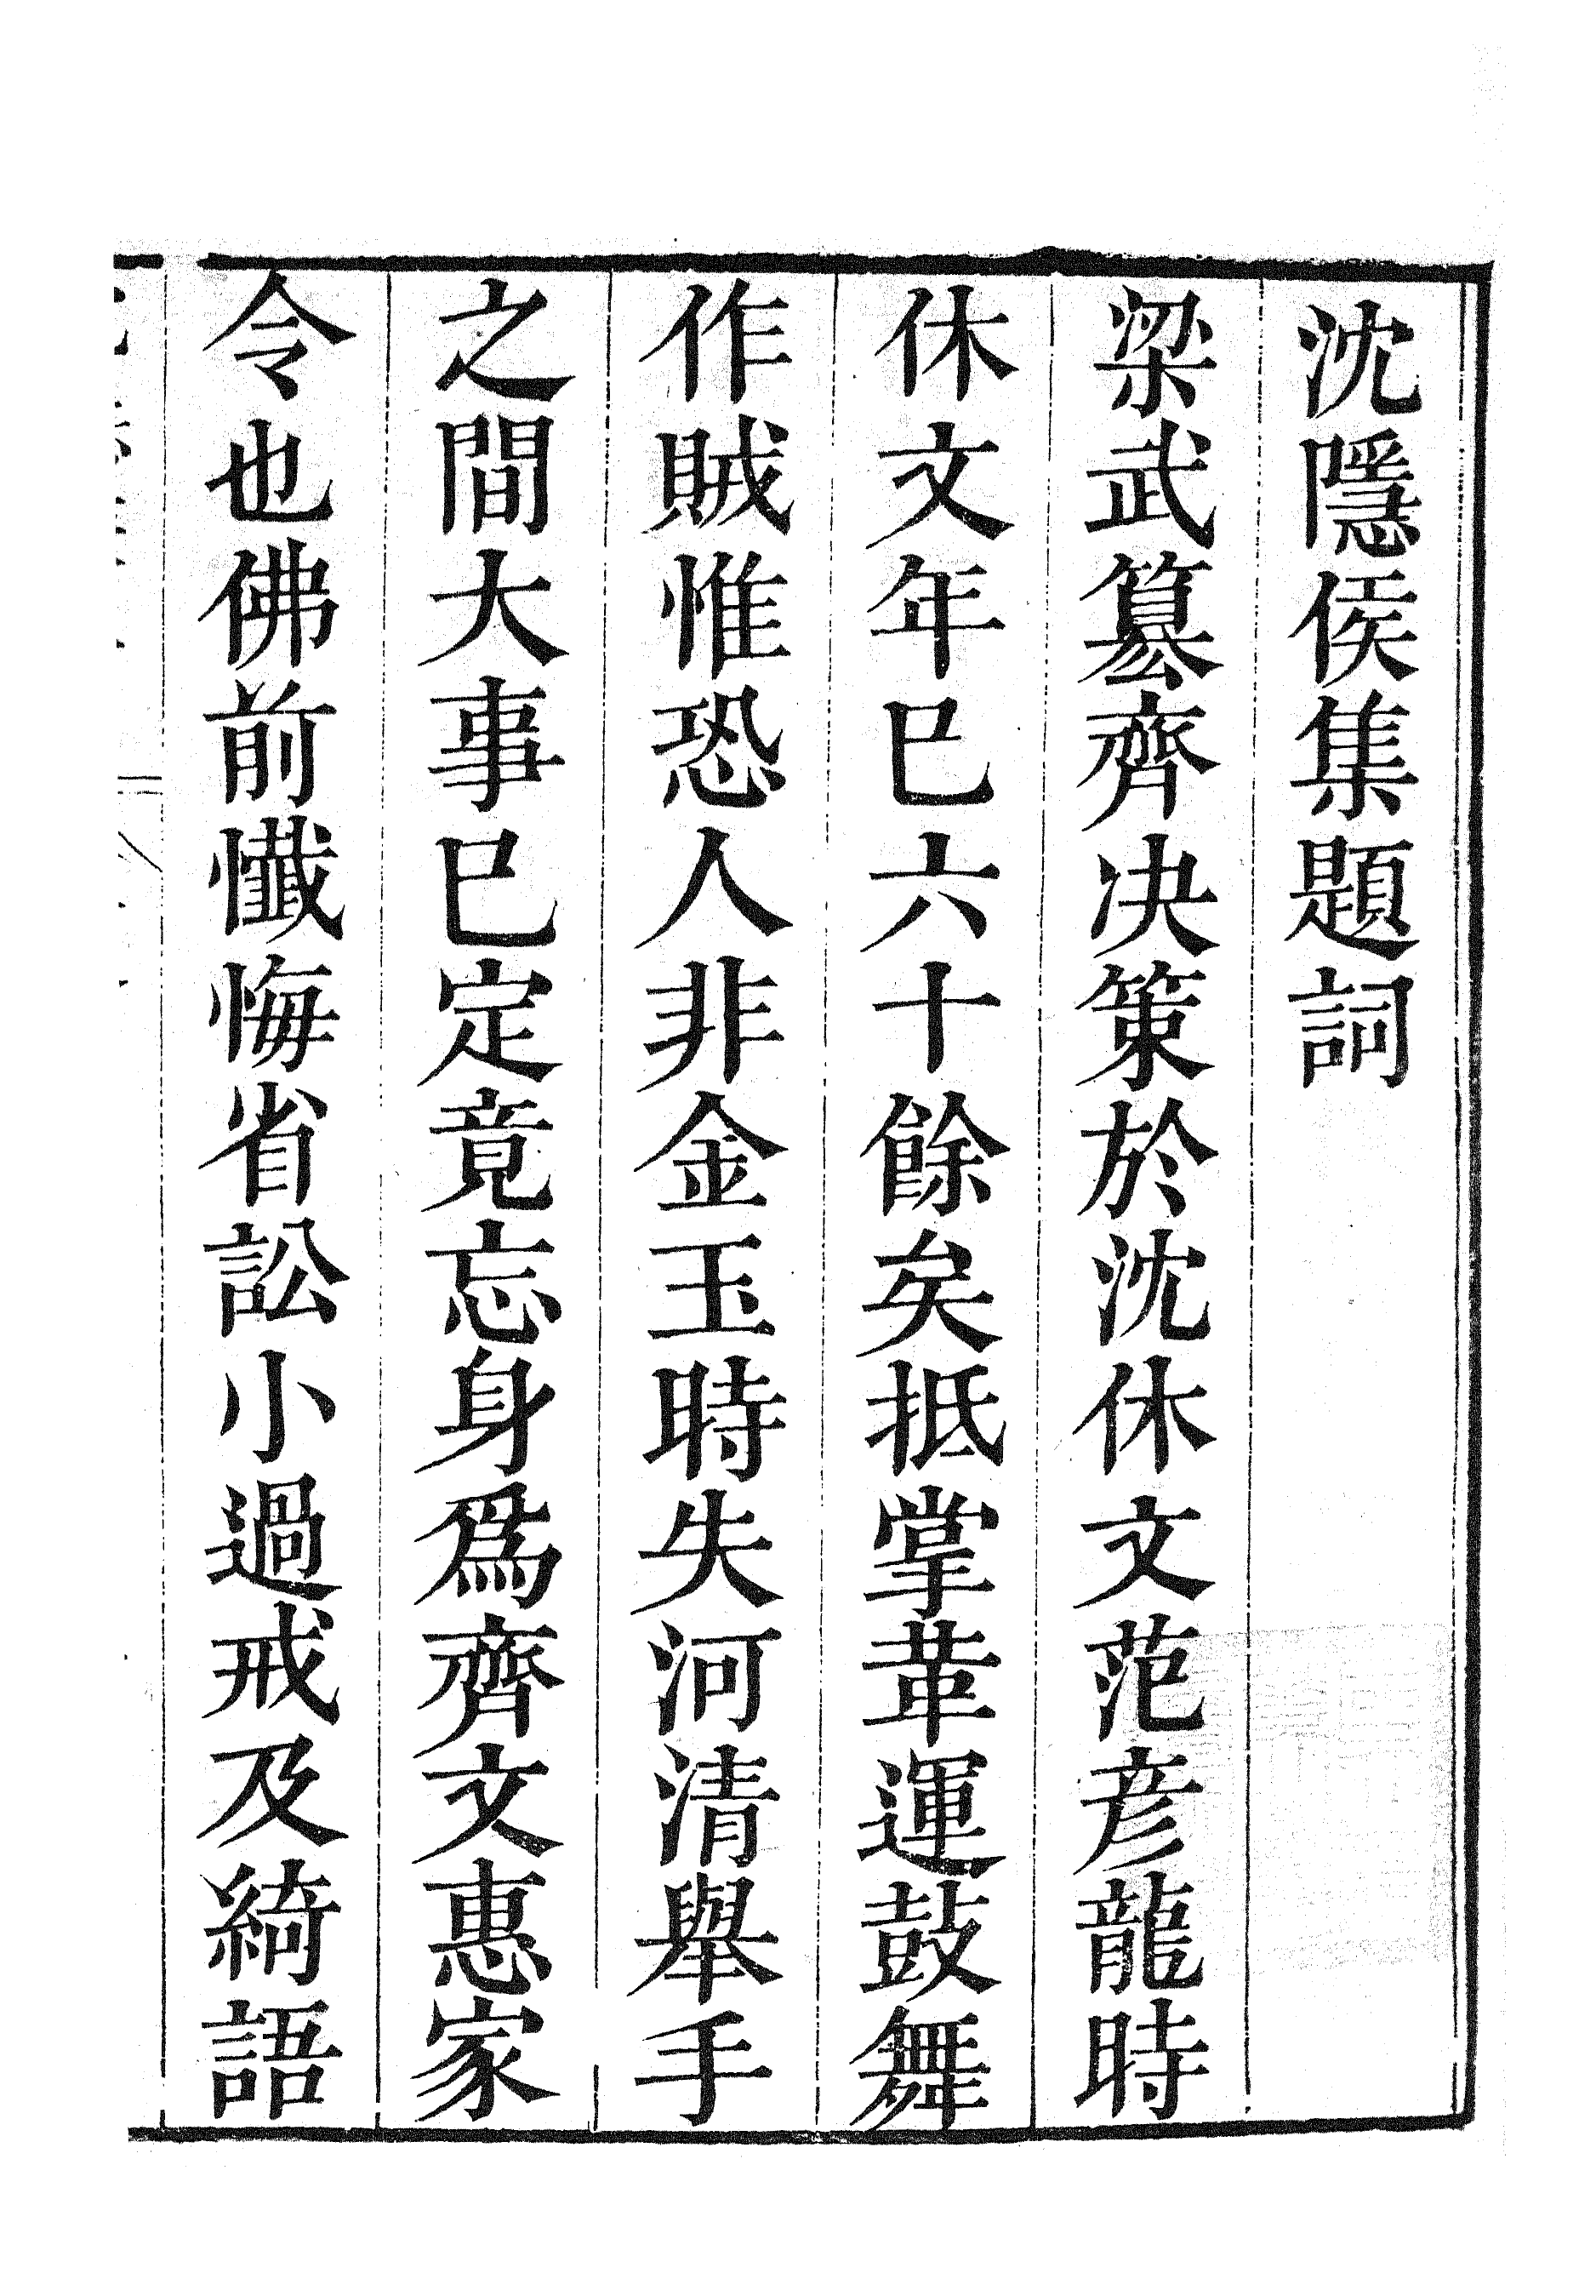 沈隱侯集題詞
梁武篡齊決策於沈休文范彥龍時
休文年巳六十餘矣抵掌葦運鼓舞
作賊惟恐人非金玉時失河清舉手
之間大事巳定竟忘身爲齊文惠家
令也佛前懺悔省訟小過戒及綺語